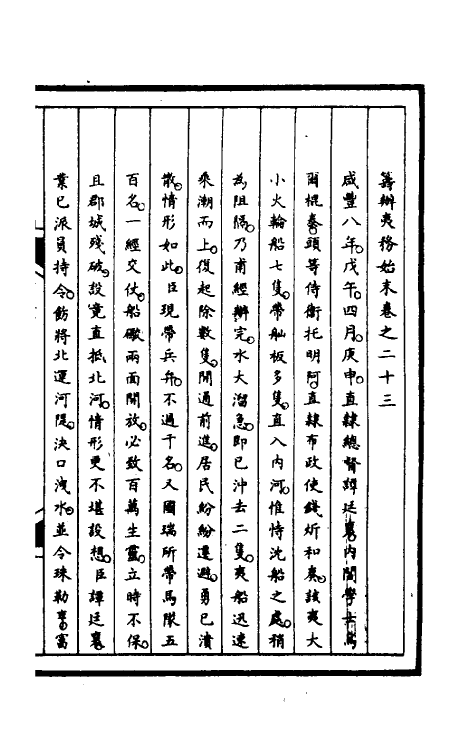 籌辦夷務始末卷之二十三
咸豐八年戊午。四月。庚申。直隸總督譚廷襄。內閣學士烏
爾棍泰。頭等侍衛托明阿。直隸布政使錢炘和奏。該夷大
小火輪船七隻。帶舢板多隻。直入內河。惟恃沈船之處。稍
為阻隔。乃甫經辦完。水大溜急。即已沖去二隻。夷船迅速
乘潮而上。復起除數隻。開通前進。居民紛紛遷避。勇已潰
散。情形如此。臣現帶兵弁。不過千名。又國瑞所帶馬隊五
百名。一經交仗。船礮兩面開放。必致百萬生靈。立時不保。
且郡城殘破。設竟直抵北河。情形更不堪設想。臣譚廷襄
業已派員持令。飭將北運河隄。決口洩水。並令珠勒亨。富